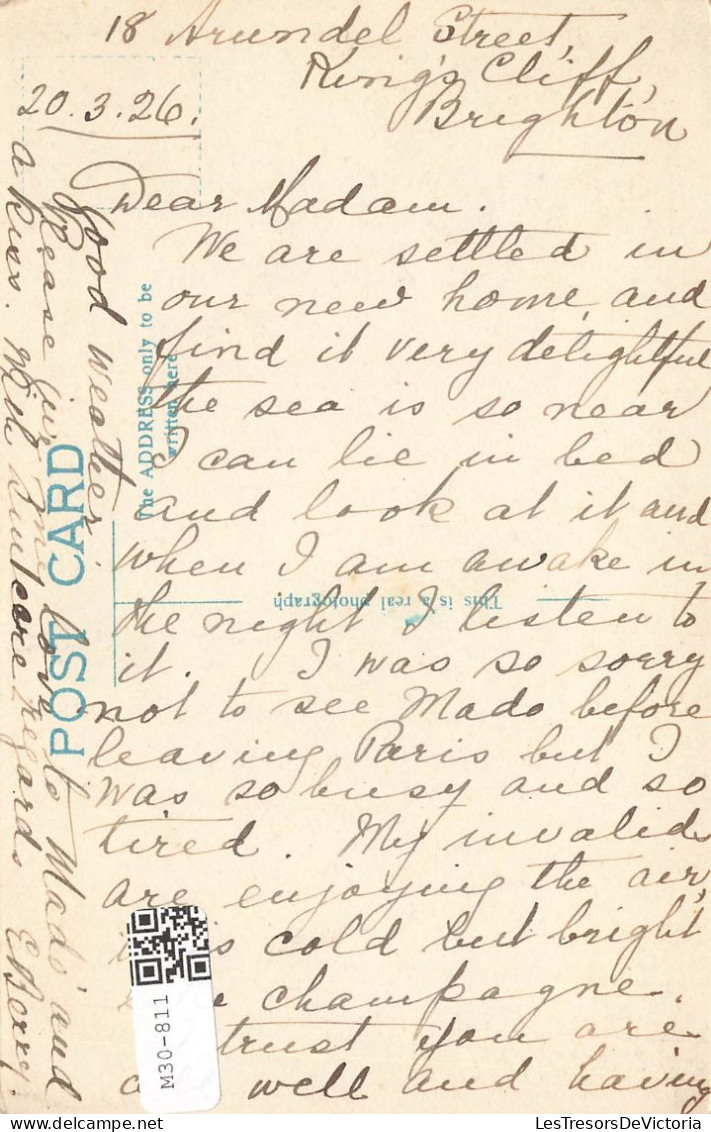 18 Arundel Street,
King's Cliff,
Brighton
20.3.26.
Dear Madam.
We are settled in
our new home and
find it very delightful
the sea is so near
I can lie in bed
and look at it and
when I am awake in
the night I listen to
it. I was so sorry
not to see Mado before
leaving Paris but I
was so busy and so
tired. My invalids
are enjoying the air,
is cold but bright
champagne.
trust you are
well and having
good weather.
Please give my love to Mado and
a kiss. With sincere regards EBerry.
POST CARD
The ADDRESS only to be
written here
This is a real photograph
M30-811
LesTresorsDeVictoria
www.delcampe.net